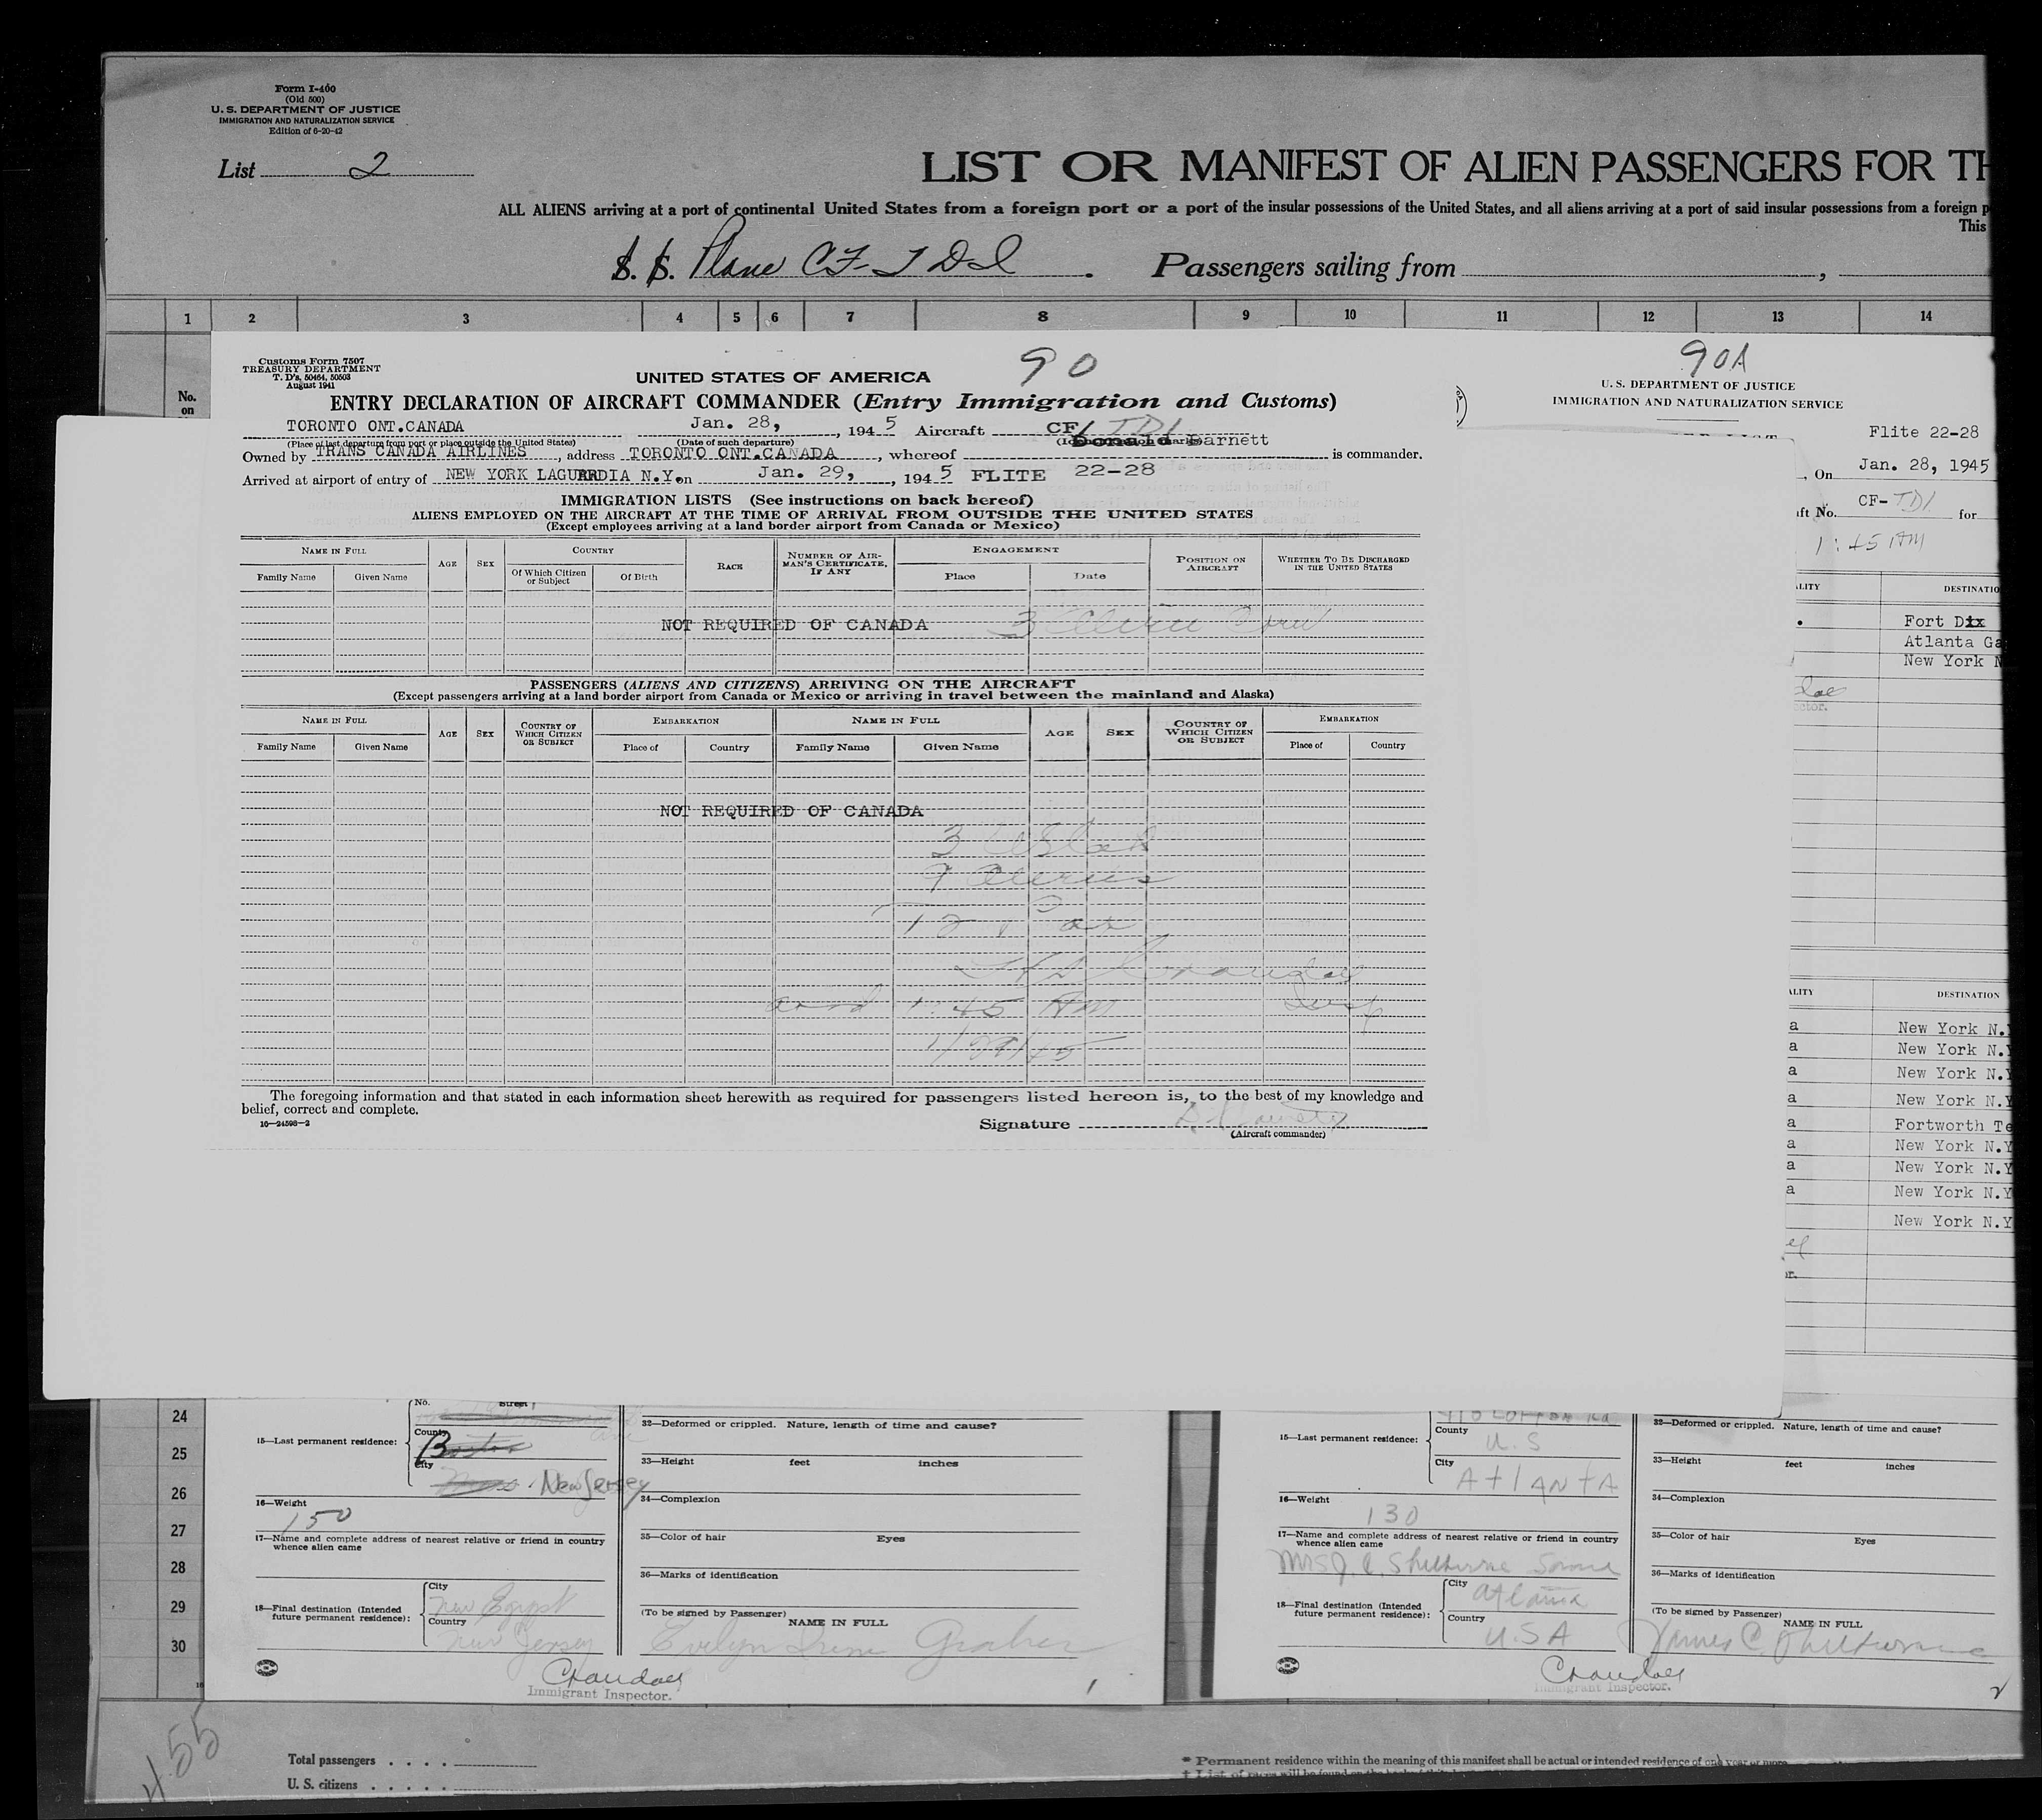 Form I-400
(Old 500)
U. S. DEPARTMENT OF JUSTICE
IMMIGRATION AND NATURALIZATION SERVICE
Edition of 6-20-42
List 2
LIST OR MANIFEST OF ALIEN PASSENGERS FOR TH
ALL ALIENS arriving at a port of continental United States from a foreign port or a port of the insular possessions of the United States, and all aliens arriving at a port of said insular possessions from a foreign p
This
S. S. Plane CF-TDI . Passengers sailing from , 
1 2 3 4 5 6 7 8 9 10 11 12 13 14
No.
on
Customs Form 7507
TREASURY DEPARTMENT
T. D's. 50464, 50503
August 1941
UNITED STATES OF AMERICA
90
ENTRY DECLARATION OF AIRCRAFT COMMANDER (Entry Immigration and Customs)
TORONTO ONT.CANADA Jan. 28, , 1945 Aircraft CF TDI
(Place of last departure from port or place outside the United States) (Date of such departure)
Owned by TRANS CANADA AIRLINES , address TORONTO ONT.CANADA , whereof Donald Barnett is commander.
Arrived at airport of entry of NEW YORK LAGUARDIA N.Y. on Jan. 29, , 1945 FLITE 22-28
IMMIGRATION LISTS (See instructions on back hereof)
ALIENS EMPLOYED ON THE AIRCRAFT AT THE TIME OF ARRIVAL FROM OUTSIDE THE UNITED STATES
(Except employees arriving at a land border airport from Canada or Mexico)
NAME IN FULL AGE SEX COUNTRY RACE NUMBER OF AIRMAN'S CERTIFICATE, IF ANY ENGAGEMENT POSITION ON AIRCRAFT WHETHER TO BE DISCHARGED IN THE UNITED STATES
Family Name Given Name Of Which Citizen or Subject Of Birth Place Date
NOT REQUIRED OF CANADA 3 Alien Crew
PASSENGERS (ALIENS AND CITIZENS) ARRIVING ON THE AIRCRAFT
(Except passengers arriving at a land border airport from Canada or Mexico or arriving in travel between the mainland and Alaska)
NAME IN FULL AGE SEX COUNTRY OF WHICH CITIZEN OR SUBJECT EMBARKATION NAME IN FULL AGE SEX COUNTRY OF WHICH CITIZEN OR SUBJECT EMBARKATION
Family Name Given Name Place of Country Family Name Given Name Place of Country
NOT REQUIRED OF CANADA
3
9 Aliens
12 Pas
1:45 AM
1/29/45
The foregoing information and that stated in each information sheet herewith as required for passengers listed hereon is, to the best of my knowledge and
belief, correct and complete.
16-24598-2
Signature
(Aircraft commander)
90A
U. S. DEPARTMENT OF JUSTICE
IMMIGRATION AND NATURALIZATION SERVICE
Flite 22-28
, On Jan. 28, 1945
ft No. CF-TDI for
1:45 AM
LITY DESTINATIO
Fort Dix
Atlanta Ga
New York N
ctor.
ALITY DESTINATION
a New York N.
a New York N.Y
a New York N.Y
a New York N.Y
a Fortworth Te
a New York N.Y
a New York N.Y
a New York N.Y
New York N.Y
r.
24
25
26
27
28
29
30
No. Street
15—Last permanent residence:
County
Boston
City
New Jersey
16—Weight
150
17—Name and complete address of nearest relative or friend in country
whence alien came
18—Final destination (Intended
future permanent residence):
City
New Egypt
Country
New Jersey
32—Deformed or crippled. Nature, length of time and cause?
33—Height feet inches
34—Complexion
35—Color of hair Eyes
36—Marks of identification
(To be signed by Passenger)
NAME IN FULL
Evelyn Irene
Crandall
Immigrant Inspector.
1
15—Last permanent residence:
County
U.S
City
AtlANtA
16—Weight
130
17—Name and complete address of nearest relative or friend in country
whence alien came
Mrs J. C. Shelburne Same
18—Final destination (Intended
future permanent residence):
City
Atlanta
Country
U.S.A
32—Deformed or crippled. Nature, length of time and cause?
33—Height feet inches
34—Complexion
35—Color of hair Eyes
36—Marks of identification
(To be signed by Passenger)
NAME IN FULL
James C. Shelburne
Crandall
Immigrant Inspector.
2
455
Total passengers . . . .
U. S. citizens . . . . .
* Permanent residence within the meaning of this manifest shall be actual or intended residence of one year or more.